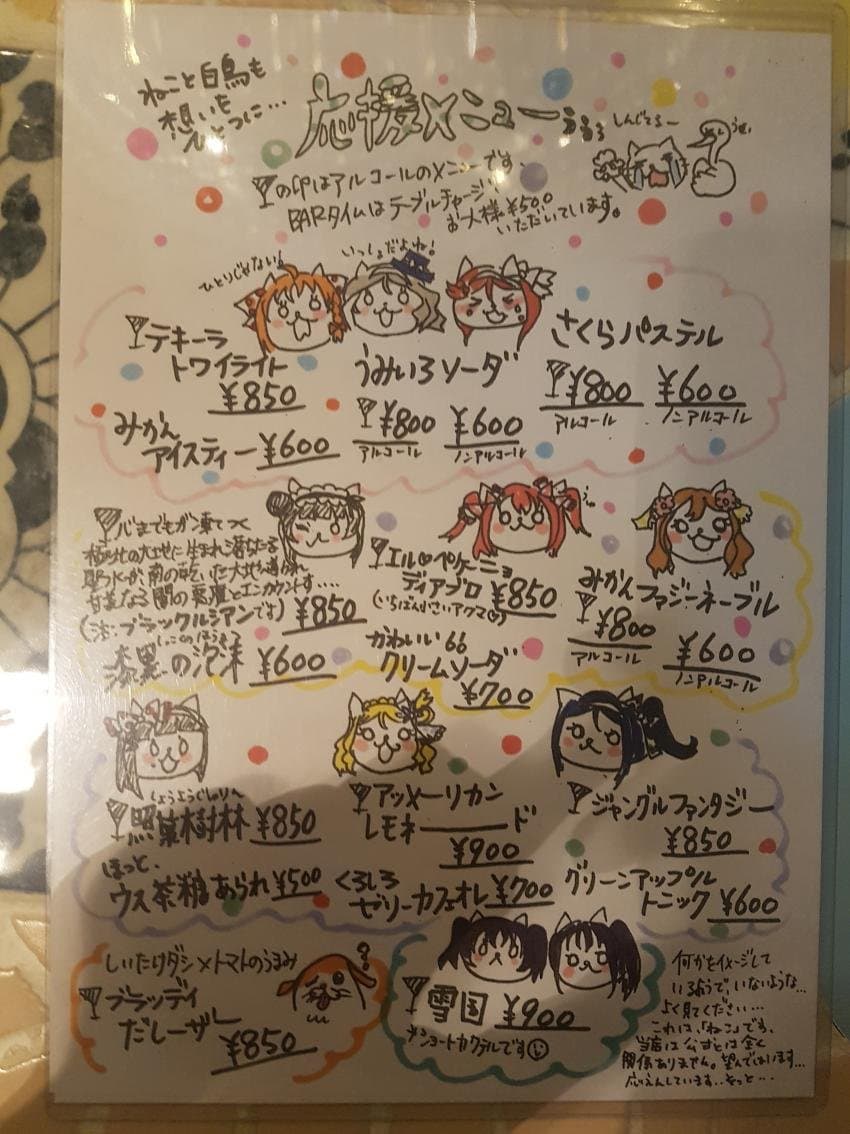 ねこと白鳥も
想いを
ひとつに…
応援メニュー
しんじてるー
の印はアルコールのメニューです。
BARタイムはテーブルチャージ
お一人様¥500
いただいています。
ひとりじゃない!
いっしょだよね!
テキーラ
トワイライト
¥850
みかん
アイスティー ¥600
うみいろソーダ
¥800 ¥600
アルコール ノンアルコール
さくらパステル
¥800 ¥600
アルコール ノンアルコール
心までもガン凍てつく
極北の大地に生まれ落ちたる
聖水が南の乾いた大地
甘美なる闇の悪魔とエンカウントす……
(注:ブラックルシアンです) ¥850
しっこくのほうまつ
漆黒の泡沫 ¥600
エル♡ペケーニョ
ディアブロ ¥850
(いちばんちいさいアクマ)
かわいい66
クリームソーダ
¥700
みかんファジーネーブル
¥800 ¥600
アルコール ノンアルコール
しょうようじゅりん
照葉樹林 ¥850
ほっと、
ウス茶糖あられ ¥500
アッメーリカン
レモネ――ド
¥900
くろしろ
ゼリーカフェオレ ¥700
ジャングルファンタジー
¥850
グリーンアップル
トニック ¥600
しいたけダシ×トマトのうまみ
ブラッディ
だしーザー
¥850
雪国 ¥900
*ショートカクテルです
何かをイメージして
いるようで、いないような…
よく見てください…
これは、「ねこ」です。
当店は公式とは全く
関係ありません。望んではいます…
応えんしています…そっと…